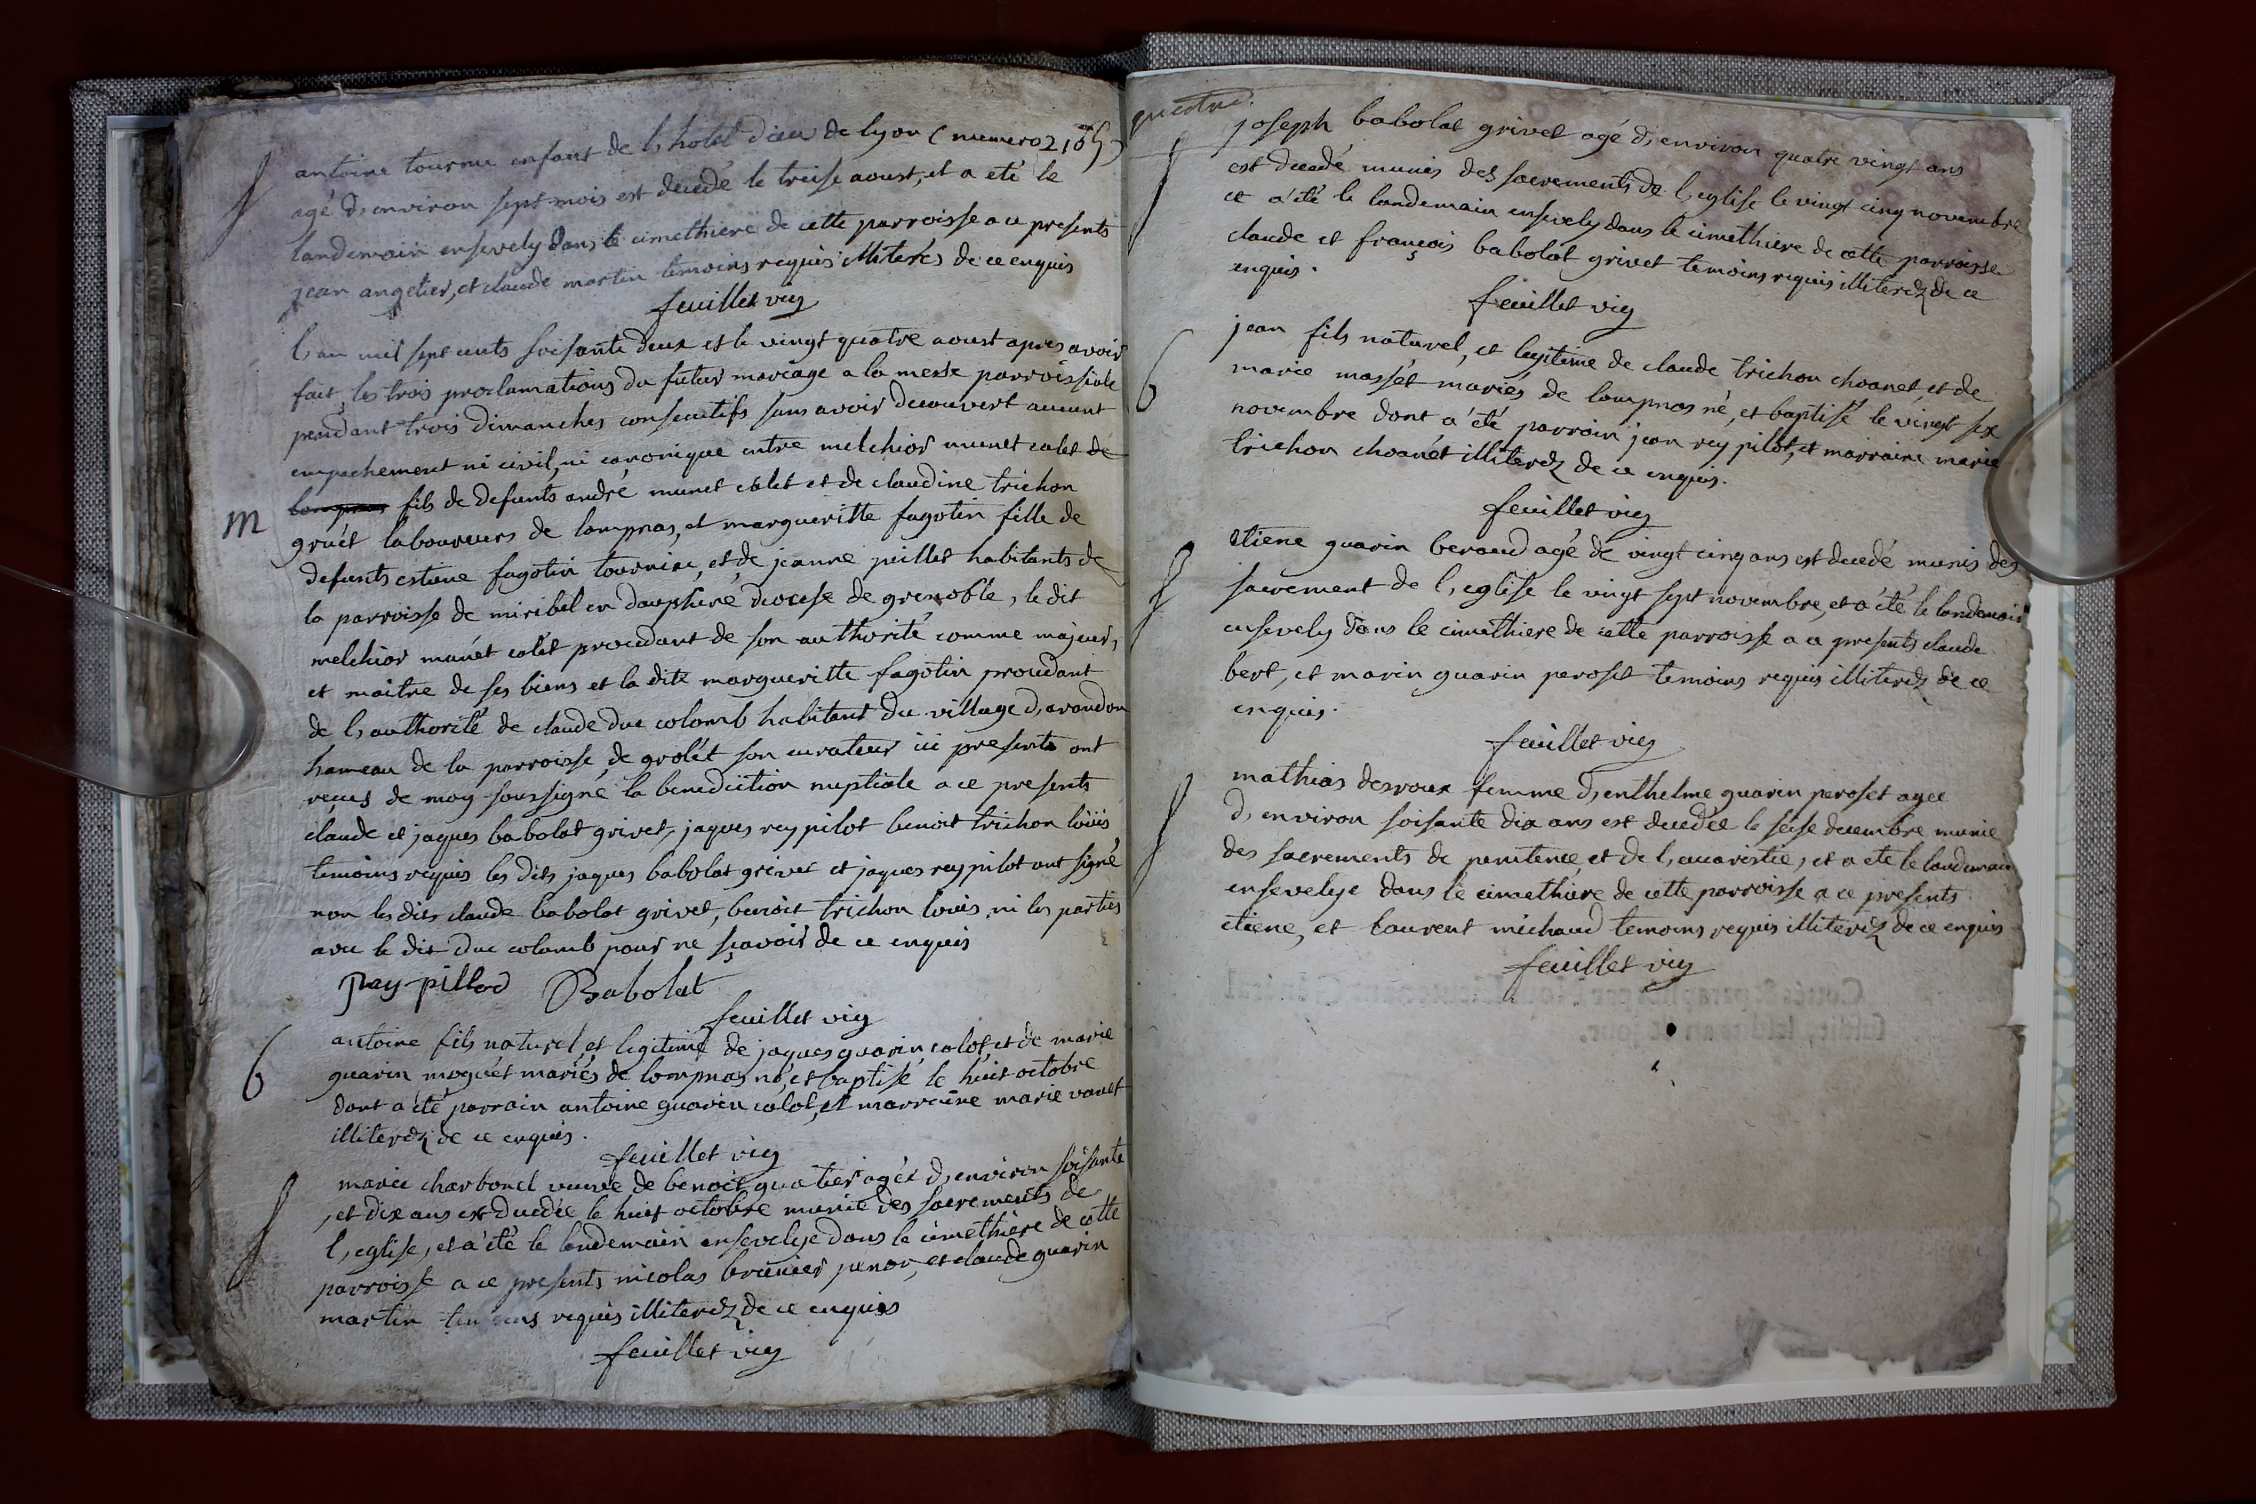 antoine tournu enfant de l, hotel dieu de lyon (numero 2165)
agé d, environ sept mois est decedé le treise aoust, et a eté le
landemain ensevely dans le cimethiere de cette parroisse a ce presents
jean angelier, et claude martin temoins requis illiterés de ce enquis
feuillet vic
l, an mil sept cents soisante deux et le vingt quatre aoust apres avoir
fait les trois proclamations du futur mariage a la messe parroissiale
pendant trois dimanches consecutifs sans avoir decouvert aucunt
empechement ni civil, ni canonique entre melchior munet colet de
fils de defunts andré munet colet et de claudine trichon
m
gruét laboureurs de lompnas, et margueritte fagotin fille de
defunts estiene fagotin tournier, et de jeanne peillet habitants de
la parroisse de miribel en dauphiné diocese de grenoble, le dit
melchior munét colét procedant de son authorité comme majeur,
et maitre de ses biens et la dite margueritte fagotin procedant
de l, authorité de claude duc colomb habitant du village d, arandon
hameau de la parroisse de grolét son curateur ici presents ont
reçus de moy soussigné la benediction nuptiale a ce presents
claude et jaques babolat grivet, jaques rey pilot benoit trichon loüis
temoins requis les dits jaques babolat grivet et jaques rey pilot ont signé
non les dits claude babolat grivet, benoit trichon louis, ni les parties
avec le dit duc colomb pour ne sçavoir de ce enquis
Ray pillod Babolat
feuillet vic
b
antoine fils naturel, et legitime de jaques guarin colot, et de marie
guarin moguét mariés de lompnas né, et baptisé le huit octobre
dont a eté parrain antoine guarin colot, et marraine marie vanet
illiterez de ce enquis.
feuillet vic
marie charbonel veuve de benoit guatier agée d, environ soisante
, et dix ans est decedée le huit octobre munie des sacrements de
l, eglise, et a eté le landemain ensevelye dans le cimethiere de cette
parroisse a ce presents nicolas brunier junor, et claude guarin
martin temoins requis illiterez de ce enquis
feuillet vic
joseph babolat grivet agé d, environ quatre vingt ans
est decedé munis des sacrements de l, eglise le vingt cinq novembre
et a été le landemain ensevely dans le cimethiere de cette parroisse
claude et françois babolat grivet temoins requis illiterez de ce
enquis.
feuillet vic
b
jean fils naturel, et legitime de claude trichon choanet, et de
marie massét mariés de lompnas né, et baptisé le vingt six
novembre dont a été parrain jean rey pilot, et marraine marie
trichon choanét illiterez de ce enquis.
feuillet vic
etiene guarin beraud agé de vingt cinq ans est decedé munis des
sacrement de l, eglise le vingt sept novembre, et a été le landemain
ensevely dans le cimethiere de cette parroisse a ce presents claude
bert, et marin guarin peroset temoins requis illiterez de ce
enquis.
feuillet vic
mathias desroux femme d, enthelme guarin peroset agee
d, environ soisante dix ans est decedée le seise decembre munie
des sacrements de penitence et de l, eucaristie, et a eté le landemain
ensevelye dans le cimethiere de cette parroisse a ce presents
etiene, et laurent michaud temoins requis illiterez de ce enquis
feuillet vic